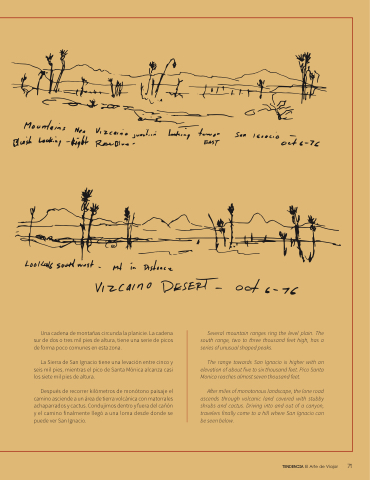 Mountains Nea Vizcaino junction looking tow
San Ignacio —
Looking - Right
EAST
oct 6-76
Looking south west - mt in Distance
VIZCAINO DESERT - oct 6-76
Una cadena de montañas circunda la planicie. La cadena
sur de dos o tres mil pies de altura, tiene una serie de picos
de forma poco comunes en esta zona.
La Sierra de San Ignacio tiene una elevación entre cinco y
seis mil pies, mientras el pico de Santa Mónica alcanza casi
los siete mil pies de altura.
Después de recorrer kilómetros de monótono paisaje el
camino asciende a un área de tierra volcánica con matorrales
achaparrados y cactus. Condujimos dentro y fuera del cañón
y el camino finalmente llegó a una loma desde donde se
puede ver San Ignacio.
Several mountain ranges ring the level plain. The
south range, two to three thousand feet high, has a
series of unusual shaped peaks.
The range towards San Ignacio is higher with an
elevation of about five to six thousand feet. Pico Santa
Monica reaches almost seven thousand feet.
After miles of monotonous landscape, the lone road
ascends through volcanic land covered with stubby
shrubs and cactus. Driving into and out of a canyon,
travelers finally come to a hill where San Ignacio can
be seen below.
TENDENCIA El Arte de Viajar 71